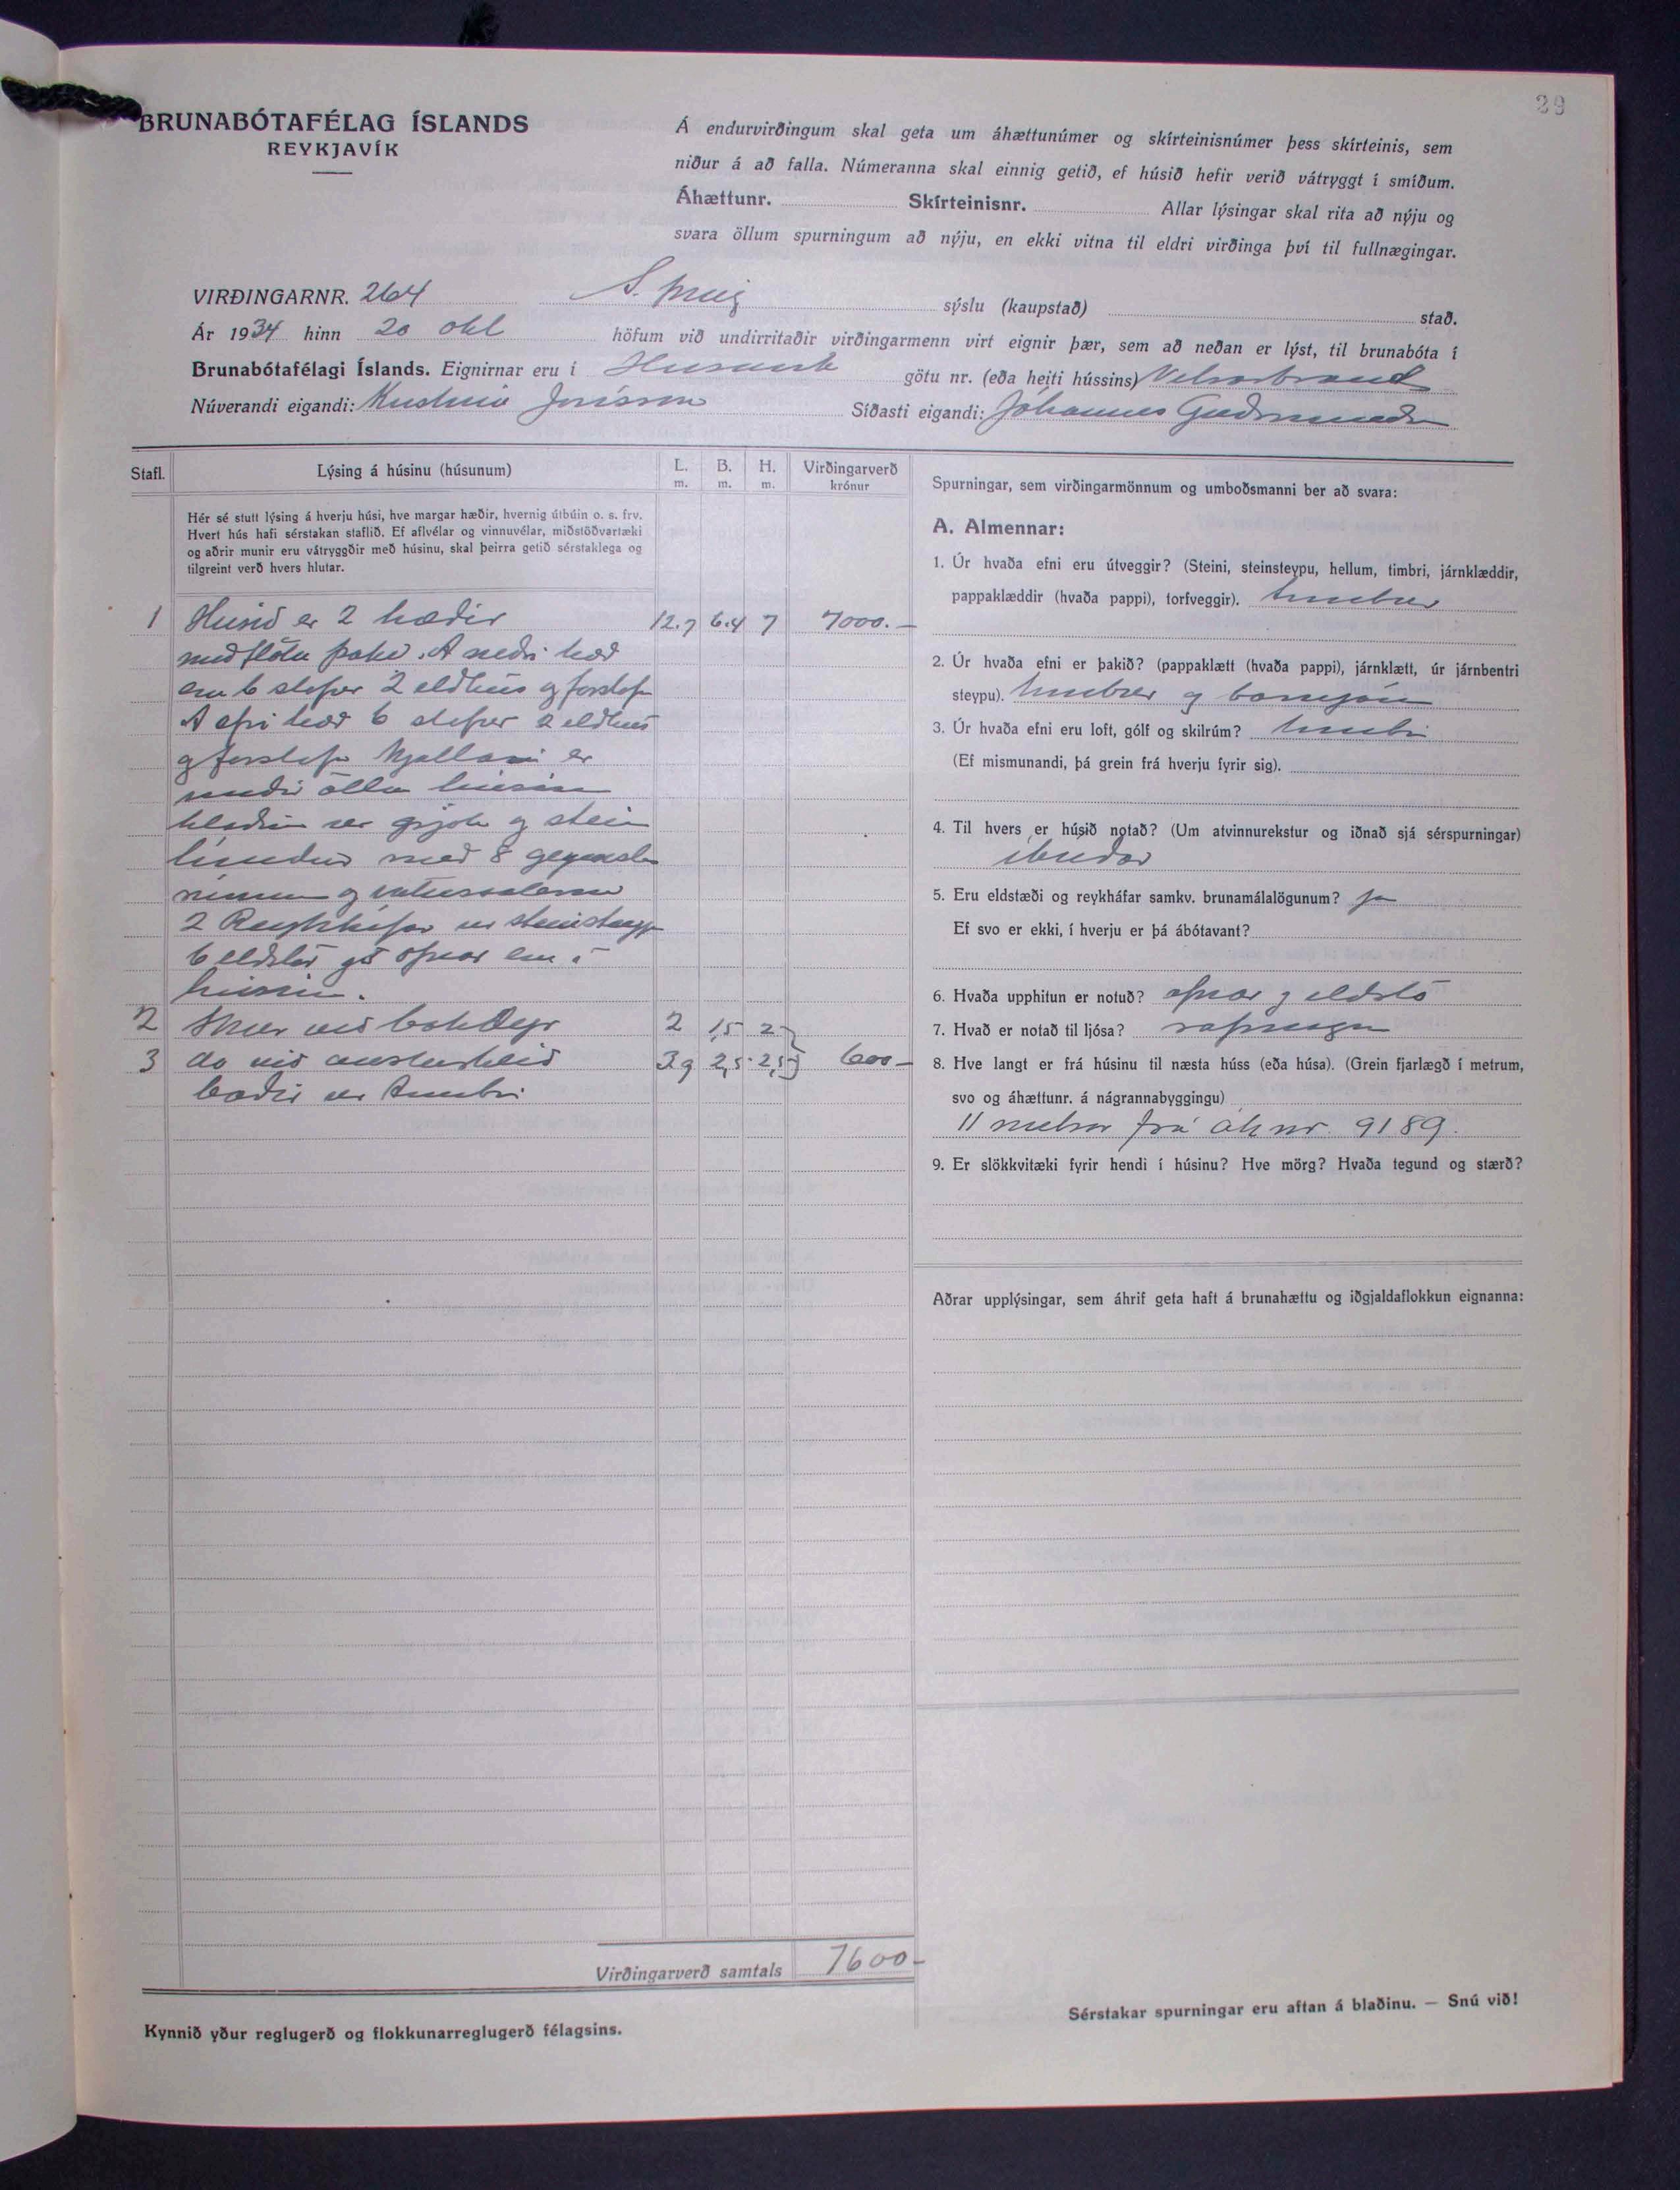 29
BRUNABÓTAFÉLAG ÍSLANDS
REYKJAVÍK
Á endurvirðingum skal geta um áhættunúmer og skírteinisnúmer þess skírteinis, sem
niður á að falla. Númeranna skal einnig getið, ef húsið hefir verið vátryggt í smíðum.
Áhættunr. Skírteinisnr. Allar lýsingar skal rita að nýju og
svara öllum spurningum að nýju, en ekki vitna til eldri virðinga því til fullnægingar.
VIRÐINGARNR. 264 S. Þing sýslu (kaupstað) stað.
Ár 1934 hinn 20 okt höfum við undirritaðir virðingarmenn virt eignir þær, sem að neðan er lýst, til brunabóta í
Brunabótafélagi Íslands. Eignirnar eru í Húsavík götu nr. (eða heiti hússins)
Núverandi eigandi: Kristinn Jónsson Síðasti eigandi: Jóhannes Guðmunds
Stafl. Lýsing á húsinu (húsunum) L. m. B. m. H. m. Virðingarverð krónur
Hér sé stutt lýsing á hverju húsi, hve margar hæðir, hvernig útbúin o. s. frv.
Hvert hús hafi sérstakan staflið. Ef aflvélar og vinnuvélar, miðstöðvartæki
og aðrir munir eru vátryggðir með húsinu, skal þeirra getið sérstaklega og
tilgreint verð hvers hlutar.
1 Húsið er 2 hæðir 12.7 6.4 7 7000.-
með flötu þaki. A neðri hæð
eru 6 stofur 2 eldhús og forstofa
A efri hæð 6 stofur 2 eldhús
og forstofa Kjallari er
undir öllu húsinu
hlaðin úr grjóti og stein
límdur með 8 geymslu
rúmum og vatnssalerni
2 Reykháfar úr steinsteypu
6 eldstór og 8 ofnar eru í
húsinu.
2 Skúr við bakdyr 2 1,5 2
3 do við austurhlið 3,9 2,5 2,5 600-
báðir úr timbri
Virðingarverð samtals 7600-
Kynnið yður reglugerð og flokkunarreglugerð félagsins.
Spurningar, sem virðingarmönnum og umboðsmanni ber að svara:
A. Almennar:
1. Úr hvaða efni eru útveggir? (Steini, steinsteypu, hellum, timbri, járnklæddir,
pappaklæddir (hvaða pappi), torfveggir). timbri
2. Úr hvaða efni er þakið? (pappaklætt (hvaða pappi), járnklætt, úr járnbentri
steypu). timbri og bárujárn
3. Úr hvaða efni eru loft, gólf og skilrúm? timbri
(Ef mismunandi, þá grein frá hverju fyrir sig).
4. Til hvers er húsið notað? (Um atvinnurekstur og iðnað sjá sérspurningar)
íbúðar
5. Eru eldstæði og reykháfar samkv. brunamálalögunum? já
Ef svo er ekki, í hverju er þá ábótavant?
6. Hvaða upphitun er notuð? ofnar og eldstó
7. Hvað er notað til ljósa? rafmagn
8. Hve langt er frá húsinu til næsta húss (eða húsa). (Grein fjarlægð í metrum,
svo og áhættunr. á nágrannabyggingu)
11 metrar frá áh nr. 9189.
9. Er slökkvitæki fyrir hendi í húsinu? Hve mörg? Hvaða tegund og stærð?
Aðrar upplýsingar, sem áhrif geta haft á brunahættu og iðgjaldaflokkun eignanna:
Sérstakar spurningar eru aftan á blaðinu. — Snú við!